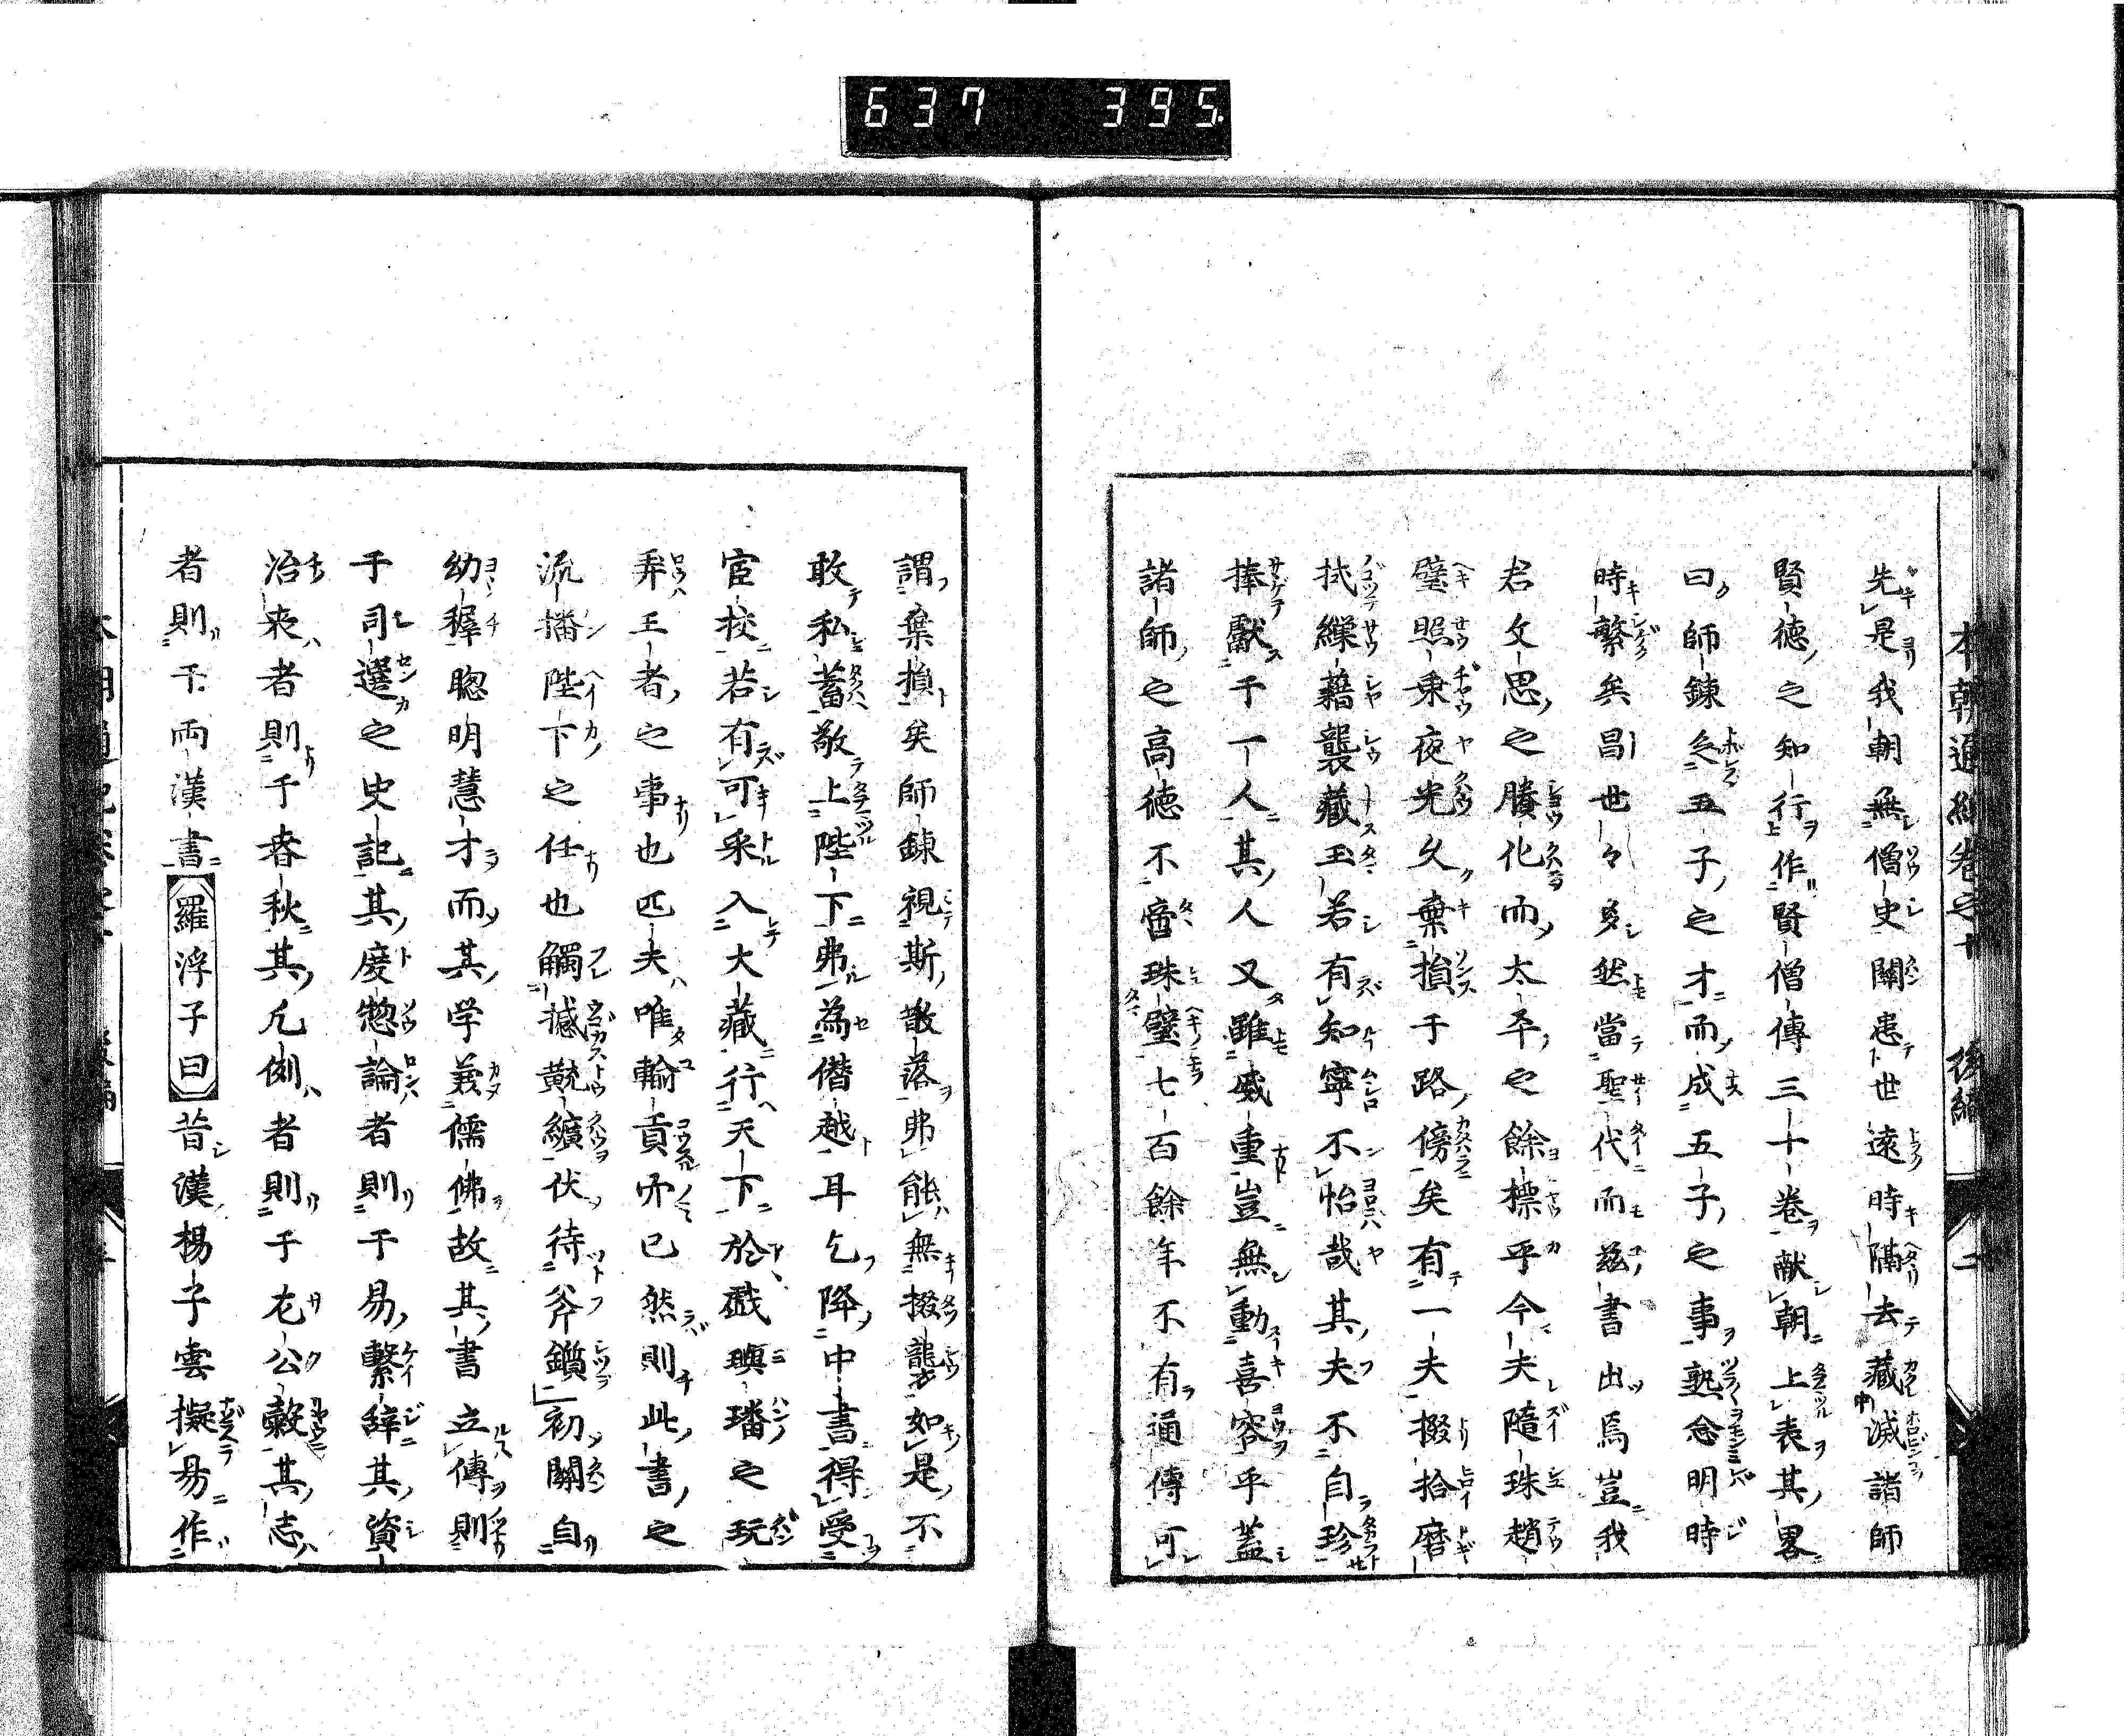 637 395.
先是我朝無僧史闕患世遠時隔去藏滅諸師
賢德之知行作賢僧傳三十卷献朝上表其畧
曰師錬乏五子之才而成五子之事熟念明時
時繁矣昌世々多然當聖代而玆書出焉豈我
君文思之賸化而太平之餘標乎今夫隨珠趙
璧照乘夜光久棄損于路傍矣有一夫掇拾磨
拭繅藉襲藏玉若有知寧不怡哉其夫不自珍
捧獻于一人其人又雖威重豈無動喜容乎蓋
諸師之高德不啻珠璧七百餘年不有通傳可
本朝通紀卷之十 後編 二
謂棄損矣師錬視斯散落弗能無掇襲如是不
敢私蓄敬上陛下弗為僭越耳乞降中書得受
宦校若有可采入大藏行天下於戲璵璠之玩
弄王者之事也匹夫唯輸貢而已然則此書之
流播陛下之任也觸撼黈纊伏待斧鑕初關自
幼穉聰明慧才而其学兼儒佛故其書立傳則
于司遷之史記其度惣論者則于易繫辭其資
治表者則于春秋其凡例者則于左公穀其志
者則于兩漢書羅浮子曰昔漢楊子雲擬易作